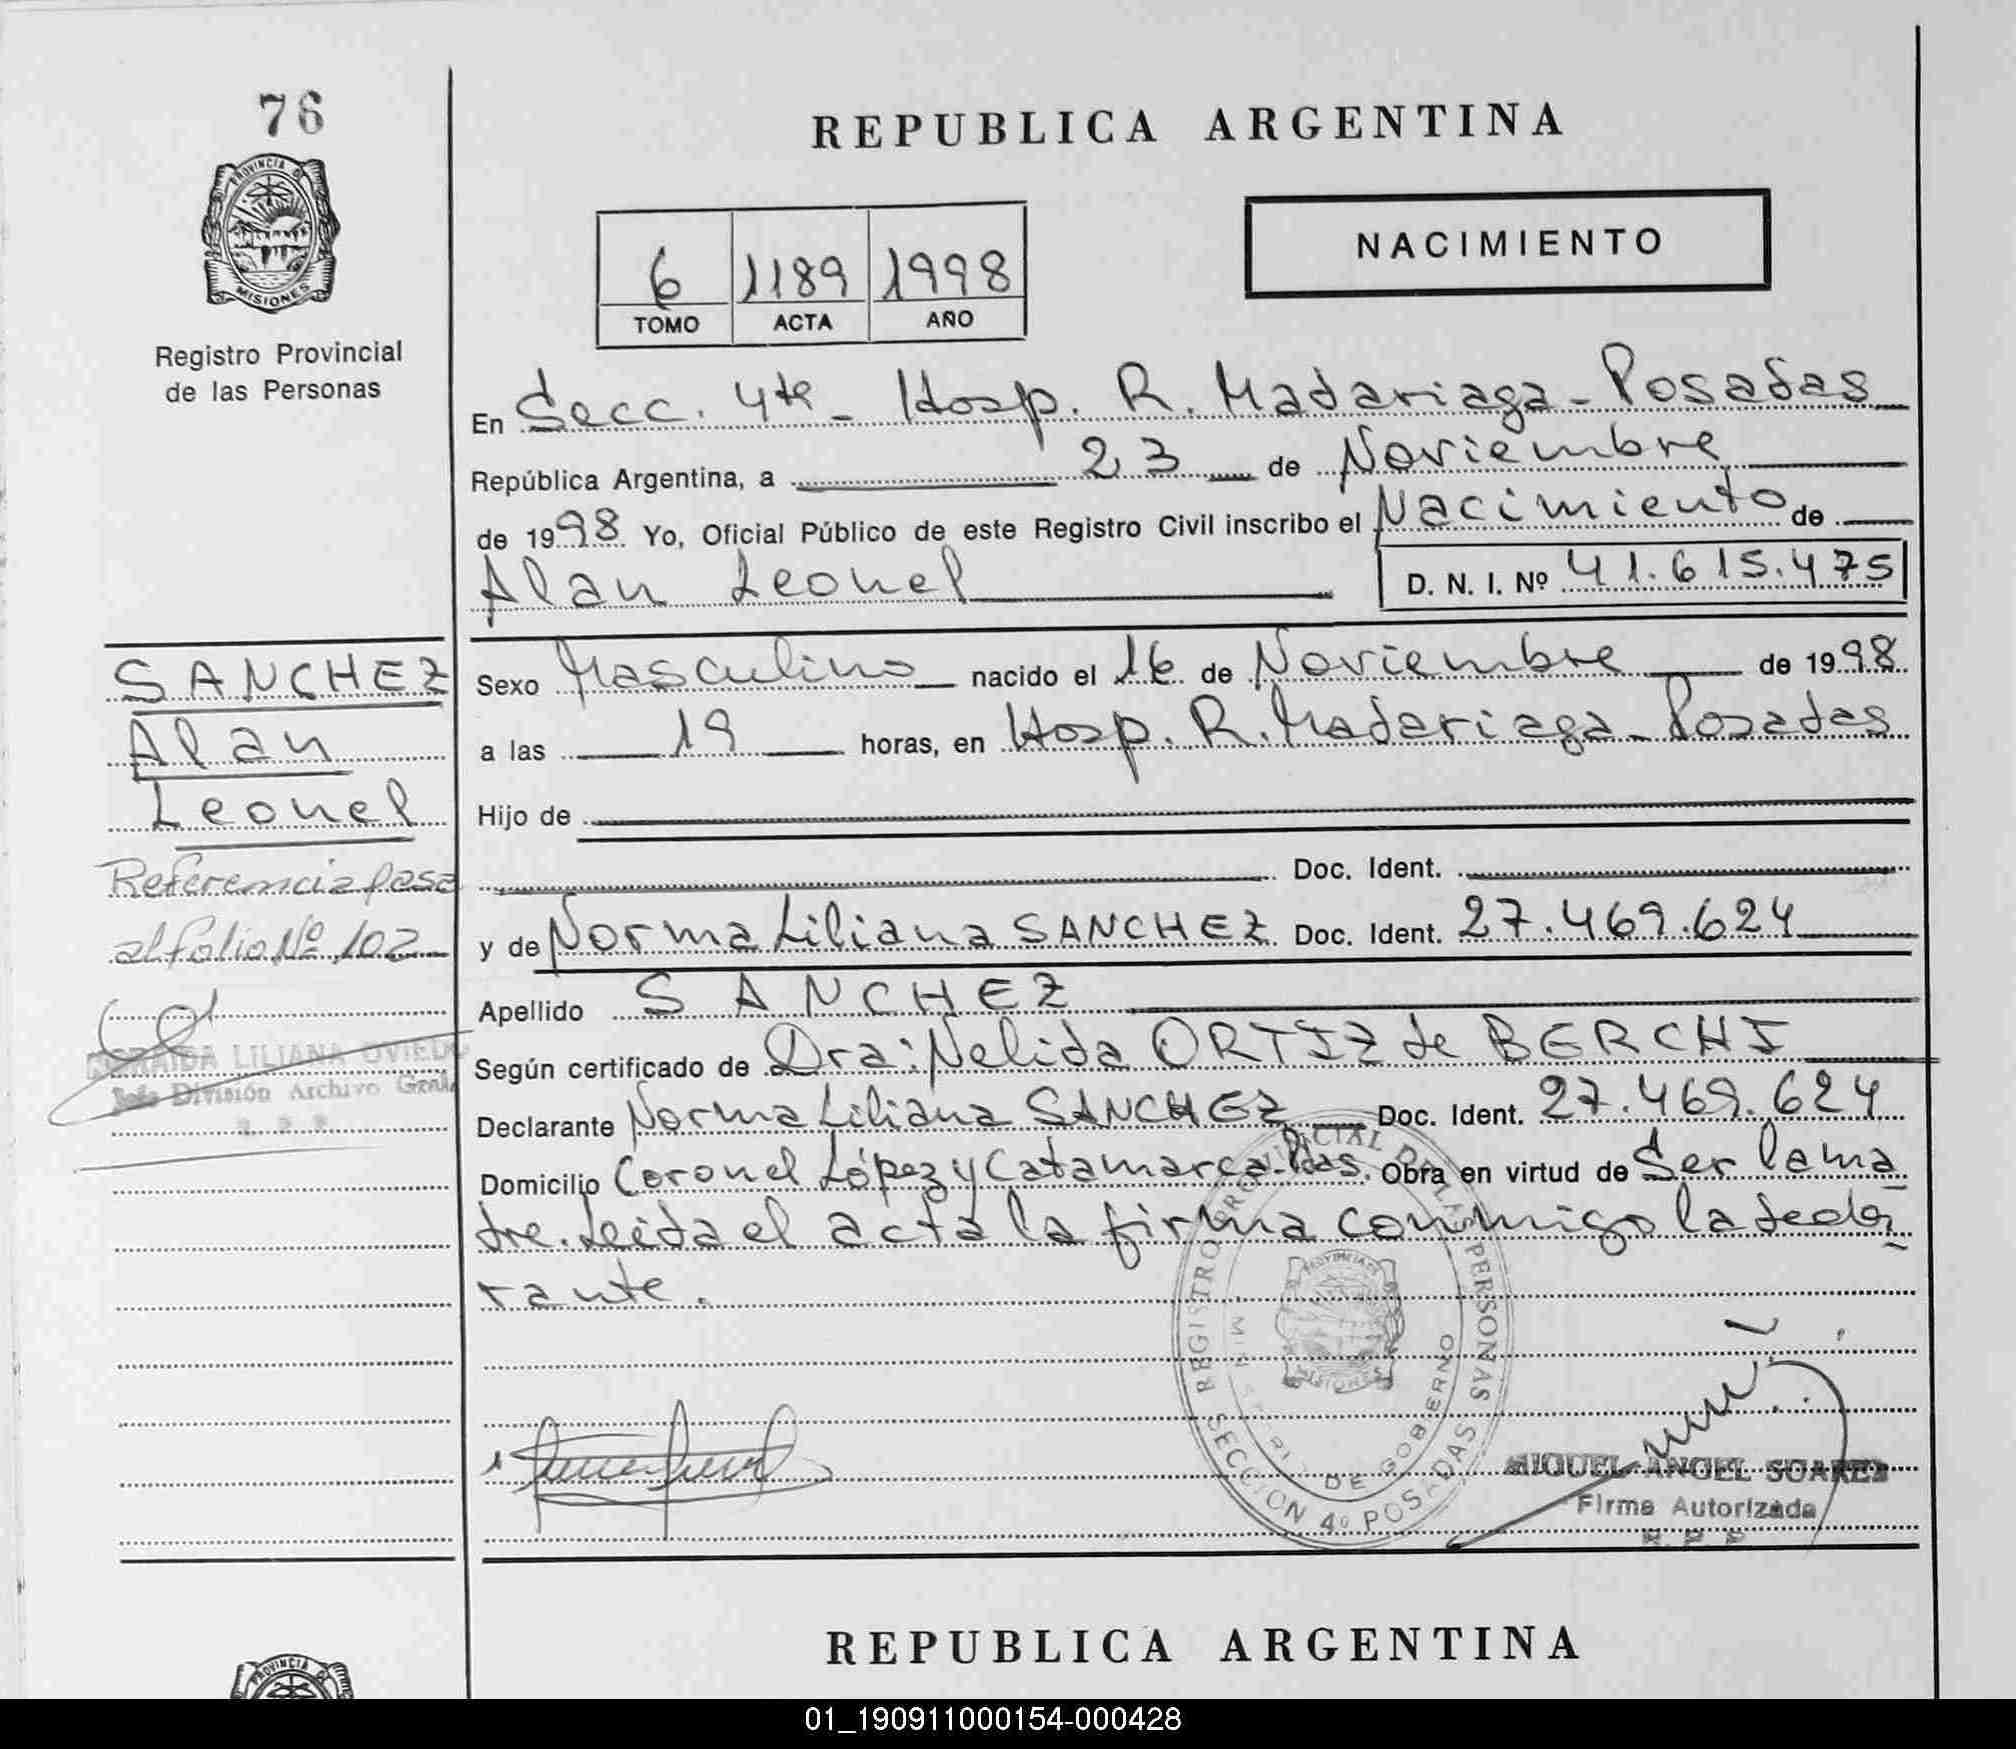 76
PROVINCIA DE
MISIONES
Registro Provincial
de las Personas
REPUBLICA ARGENTINA
NACIMIENTO
6 1189 1998
TOMO ACTA AÑO
En Secc. 4ta - Hosp. R. Madariaga - Posadas
República Argentina, a 23 de Noviembre
de 1998 Yo, Oficial Público de este Registro Civil inscribo el Nacimiento de
Alan Leonel D. N. I. Nº 41.615.475
SANCHEZ
Alan
Leonel
Referencia pasa
al folio Nº 102
LILIANA OVIEDO
Jefe División Archivo Gral.
Sexo Masculino nacido el 16 de Noviembre de 1998
a las 19 horas, en Hosp. R. Madariaga - Posadas
Hijo de
Doc. Ident.
y de Norma Liliana SANCHEZ Doc. Ident. 27.469.624
Apellido SANCHEZ
Según certificado de Dra: Nelida ORTIZ de BERCHI
Declarante Norma Liliana SANCHEZ Doc. Ident. 27.469.624
Domicilio Coronel López y Catamarca - Pdas. Obra en virtud de Ser la ma
dre. Leida el acta la firma conmigo la decla
rante.
REGISTRO PROVINCIAL DE LAS PERSONAS
MINISTERIO DE GOBIERNO
SECCION 4º POSADAS
MISIONES
MIGUEL ANGEL SUAREZ
Firma Autorizada
R. P. P
REPUBLICA ARGENTINA
PROVINCIA DE
01_190911000154-000428